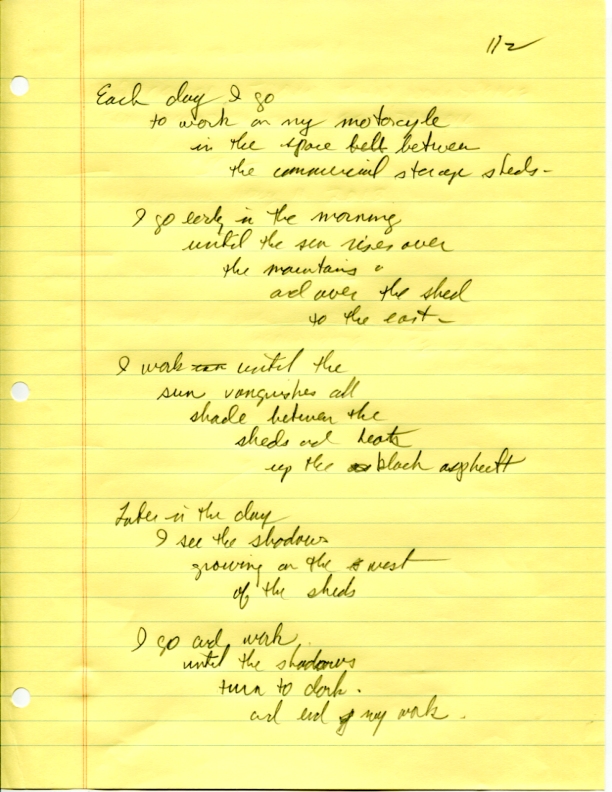 112
Each day I go
to work on my motorcycle
in the space belt between
the commercial storage sheds-
I go early in the morning
until the sun rises over
the mountains
and over the shed
to the east-
I work until the
sun vanquishes all
shade between the
sheds and heats
up the black asphelt
Later in the day
I see the shadows
growing on the west
of the sheds
I go and work
until the shadows
turn to dark.
and end my work.